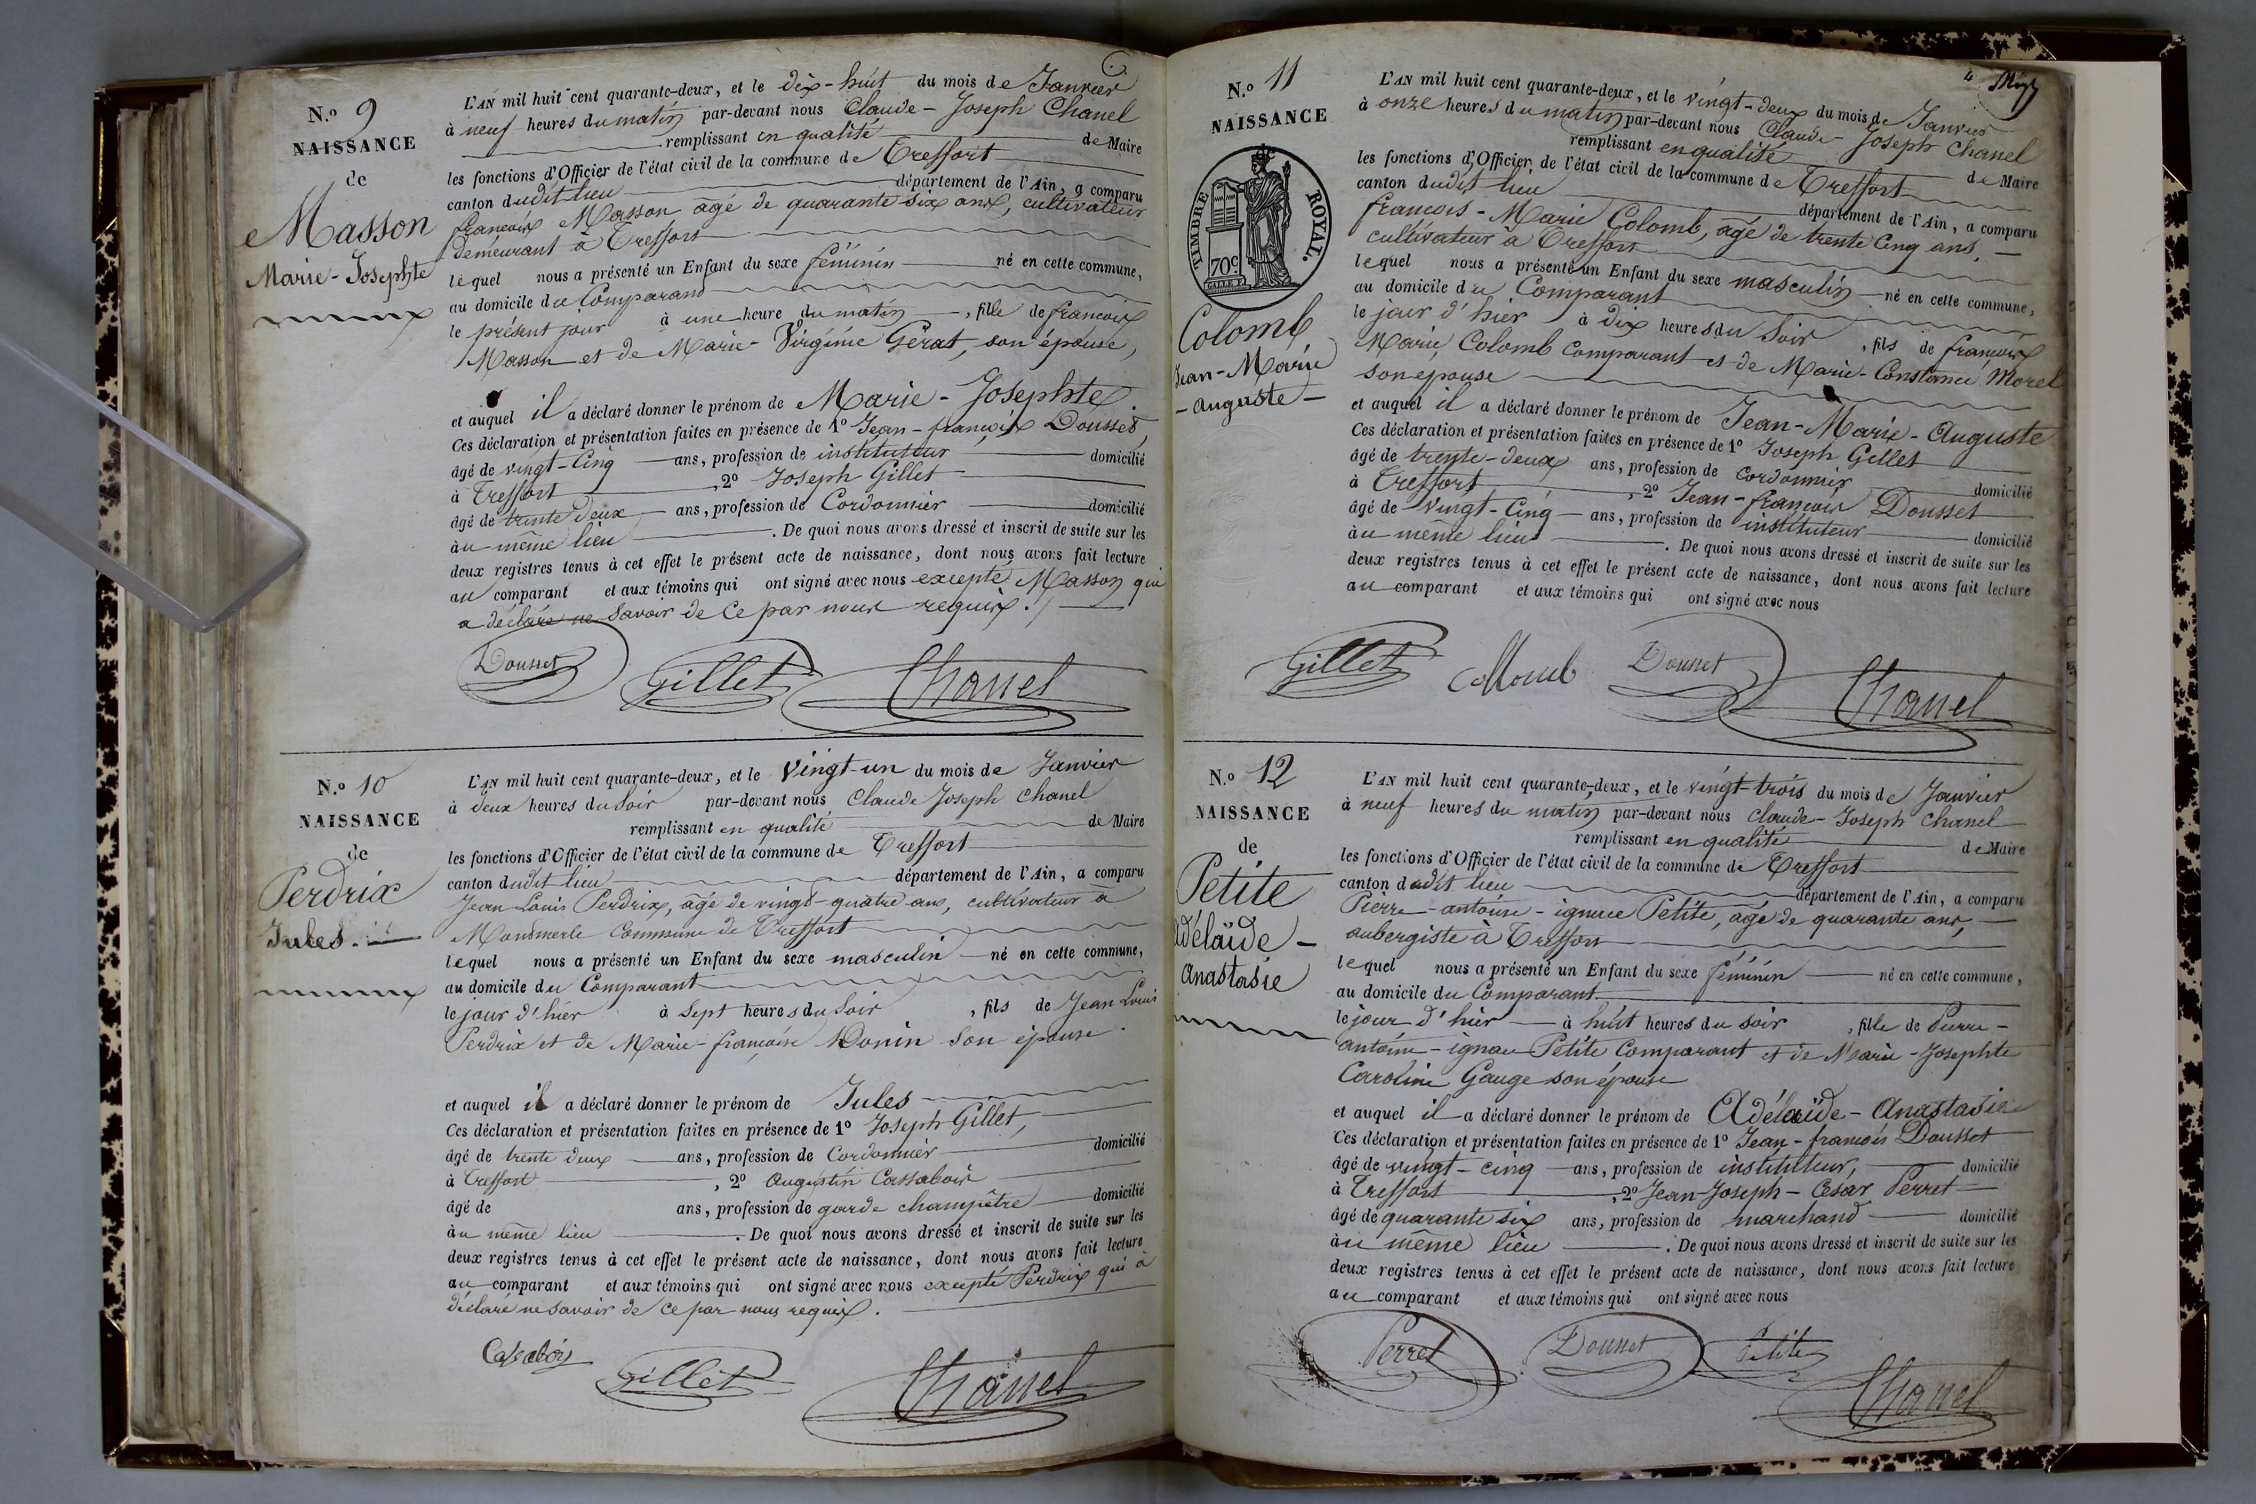 N.º 9
NAISSANCE
de
Masson
Marie-Josephte
L'AN mil huit cent quarante-deux, et le dix-huit du mois de Janvier
à neuf heures du matin par-devant nous Claude-Joseph Chanel
remplissant en qualité de Maire
les fonctions d'Officier de l'état civil de la commune de Treffort
canton dudit lieu département de l'Ain, a comparu
françois Masson agé de quarante six ans, cultivateur
demeurant à Treffort
lequel nous a présenté un Enfant du sexe féminin né en cette commune,
au domicile du Comparant
le présent jour à une heure du matin, fille de françois
Masson et de Marie-Virginie Gérat, son épouse,
et auquel il a déclaré donner le prénom de Marie-Josephte.
Ces déclaration et présentation faites en présence de 1º Jean-françois Dousset,
âgé de vingt-cinq ans, profession de instituteur domicilié
à Treffort, 2º Joseph Gillet
âgé de trente deux ans, profession de Cordonnier domicilié
au même lieu. De quoi nous avons dressé et inscrit de suite sur les
deux registres tenus à cet effet le présent acte de naissance, dont nous avons fait lecture
au comparant et aux témoins qui ont signé avec nous excepté Masson qui
a déclaré ne savoir de ce par nous requis.
Dousset Gillet Chanel
N.º 10
NAISSANCE
de
Perdrix
Jules
L'AN mil huit cent quarante-deux, et le vingt-un du mois de Janvier
à deux heures du soir par-devant nous Claude Joseph Chanel
remplissant en qualité de Maire
les fonctions d'Officier de l'état civil de la commune de Treffort
canton dudit lieu département de l'Ain, a comparu
Jean Louis Perdrix, agé de vingt-quatre ans, cultivateur a
Montmerle Commune de Treffort
lequel nous a présenté un Enfant du sexe masculin né en cette commune,
au domicile du Comparant
le jour d'hier à sept heures du soir, fils de Jean Louis
Perdrix et de Marie-françoise Monin son épouse.
et auquel il a déclaré donner le prénom de Jules
Ces déclaration et présentation faites en présence de 1º Joseph Gillet,
âgé de trente deux ans, profession de Cordonnier domicilié
à Treffort, 2º Augustin Cassabois
âgé de ans, profession de garde champêtre domicilié
au même lieu. De quoi nous avons dressé et inscrit de suite sur les
deux registres tenus à cet effet le présent acte de naissance, dont nous avons fait lecture
au comparant et aux témoins qui ont signé avec nous excepté Perdrix qui a
déclaré ne savoir de ce par nous requis.
Gillet Chanel
N.º 11
NAISSANCE
TIMBRE ROYAL.
70c.
Colomb
Jean-Marie
-Auguste-
4
L'AN mil huit cent quarante-deux, et le vingt-deux du mois de Janvier
à onze heures du matin par-devant nous Claude-Joseph Chanel
remplissant en qualité de Maire
les fonctions d'Officier de l'état civil de la commune de Treffort
canton dudit lieu département de l'Ain, a comparu
françois-Marie Colomb, agé de trente cinq ans,
cultivateur à Treffort
lequel nous a présenté un Enfant du sexe masculin né en cette commune,
au domicile du Comparant
le jour d'hier à dix heures du soir, fils de françois
Marie Colomb Comparant et de Marie-Constance Morel
son épouse
et auquel il a déclaré donner le prénom de Jean-Marie-Auguste
Ces déclaration et présentation faites en présence de 1º Joseph Gillet
âgé de trente-deux ans, profession de Cordonnier domicilié
à Treffort, 2º Jean-françois Dousset
âgé de vingt-cinq ans, profession de instituteur domicilié
au même lieu. De quoi nous avons dressé et inscrit de suite sur les
deux registres tenus à cet effet le présent acte de naissance, dont nous avons fait lecture
au comparant et aux témoins qui ont signé avec nous
Gillet Colomb Dousset Chanel
N.º 12
NAISSANCE
de
Petite
Adélaïde-
Anastasie
L'AN mil huit cent quarante-deux, et le vingt-trois du mois de Janvier
à neuf heures du matin par-devant nous Claude-Joseph Chanel
remplissant en qualité de Maire
les fonctions d'Officier de l'état civil de la commune de Treffort
canton dudit lieu département de l'Ain, a comparu
Pierre-antoine-ignace Petite, agé de quarante ans,
aubergiste à Treffort
lequel nous a présenté un Enfant du sexe féminin né en cette commune,
au domicile du Comparant
le jour d'hier à huit heures du soir, fille de Pierre-
antoine-ignace Petite Comparant et de Marie-Josephte
Caroline Gauge son épouse
et auquel il a déclaré donner le prénom de Adélaïde-Anastasie
Ces déclaration et présentation faites en présence de 1º Jean-françois Dousset
âgé de vingt-cinq ans, profession de instituteur, domicilié
à Treffort, 2º Jean-Joseph-César Perret
âgé de quarante six ans, profession de marchand domicilié
au même lieu. De quoi nous avons dressé et inscrit de suite sur les
deux registres tenus à cet effet le présent acte de naissance, dont nous avons fait lecture
au comparant et aux témoins qui ont signé avec nous
Perret Dousset Petite Chanel